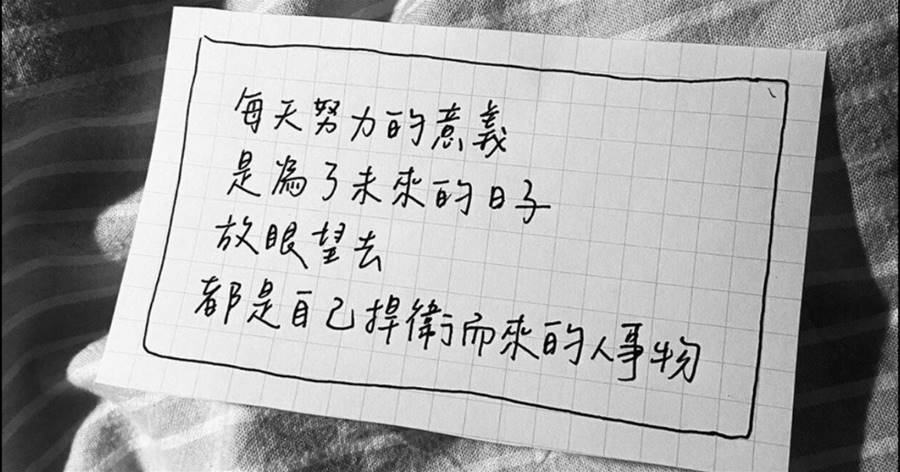 每天努力的意義
是為了未來的日子
放眼望去
都是自己捍衛而來的人事物